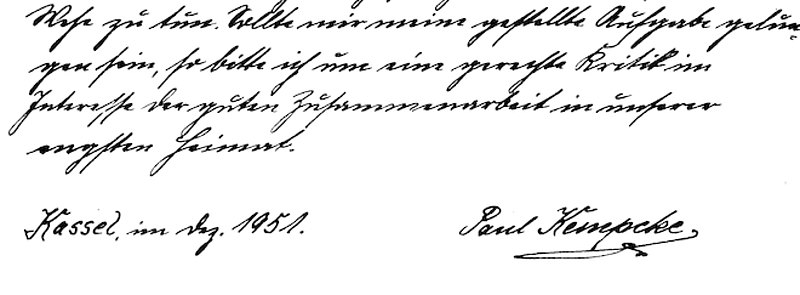 Wehe zu tun. Sollte mir meine gestellte Aufgabe gelun-
gen sein, so bitte ich um eine gerechte Kritik im
Interesse der guten Zusammenarbeit in unserer
engsten Heimat.
Kassel, im Dez. 1951.
Paul Kempcke.